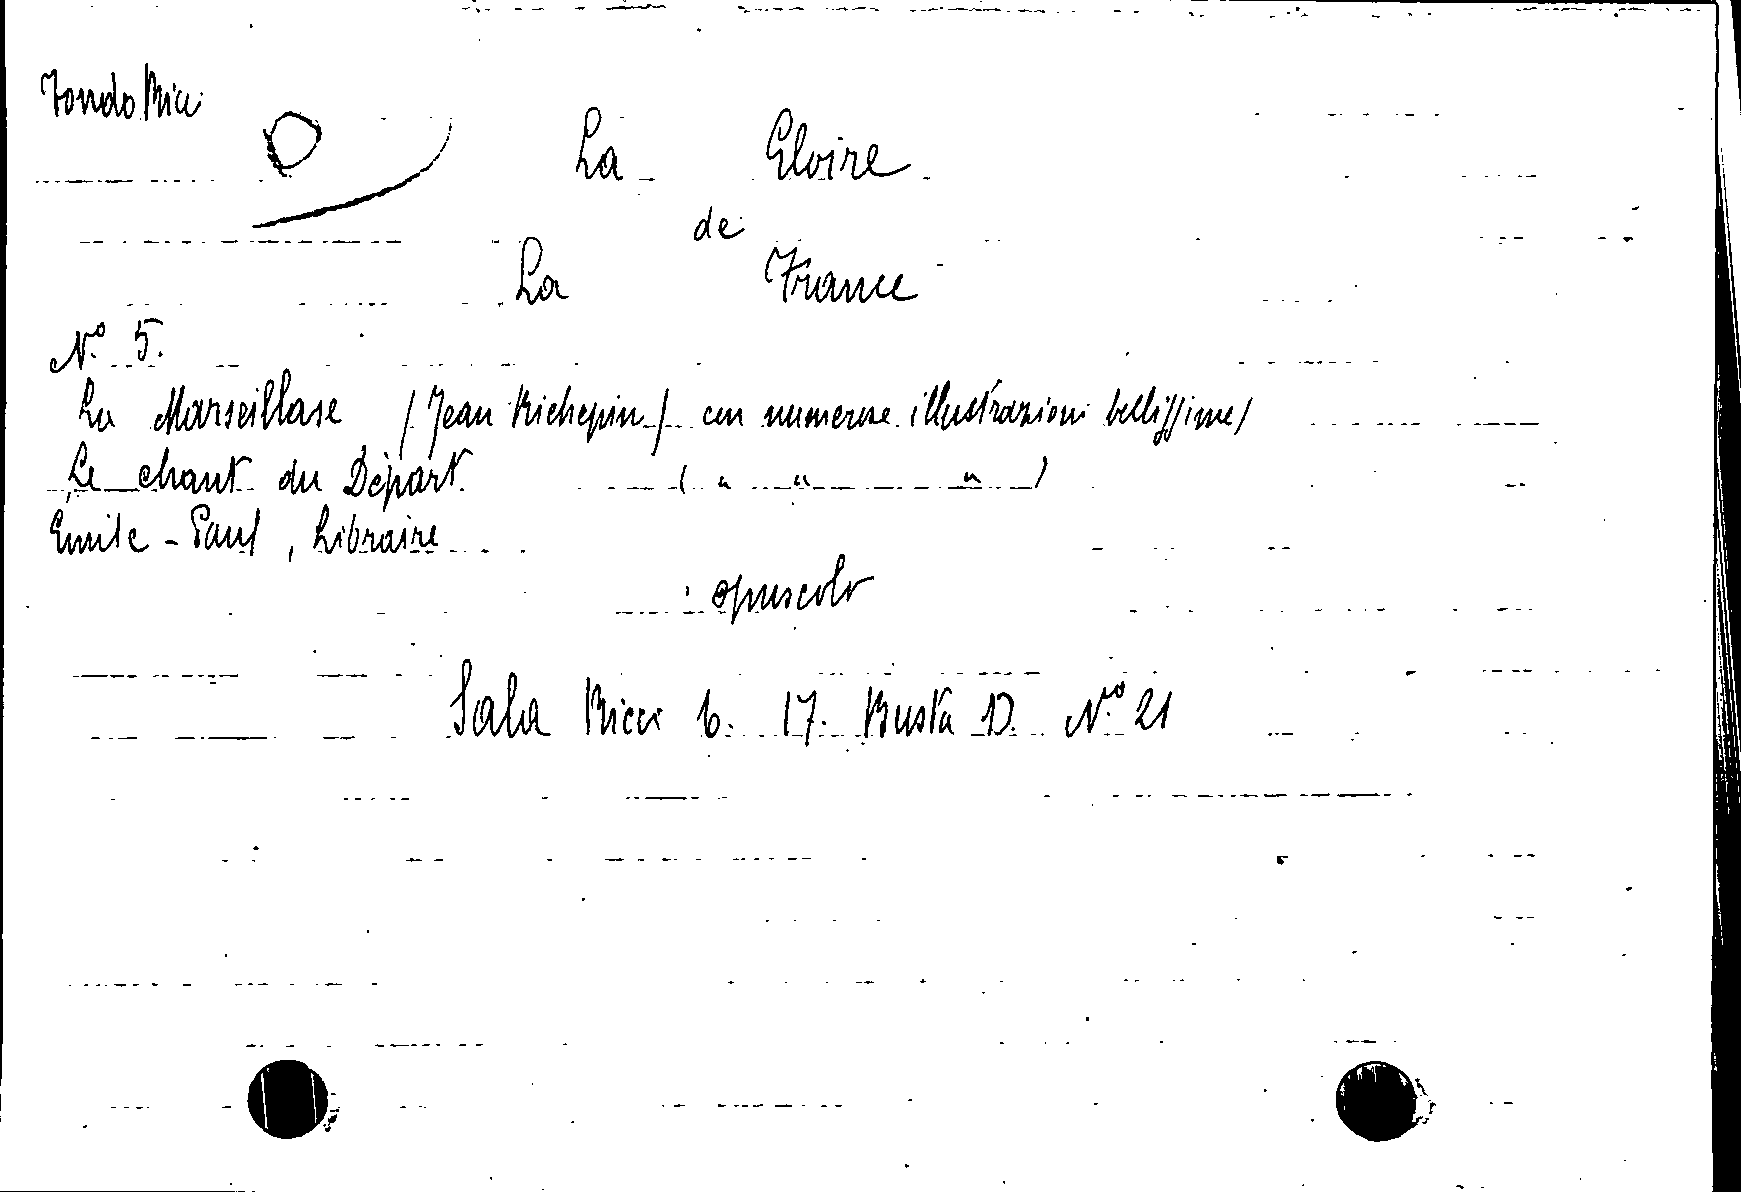 Fondo Ricci
La Gloire
de
La France
N.° 5.
La Marseillase (Jean Richepin) con numerose illustrazioni bellissime)
Le chant du Départ. ( " " " )
Emile - Paul, Libraire
opuscolo
Sala Ricci b. 17. Busta D. N.° 21